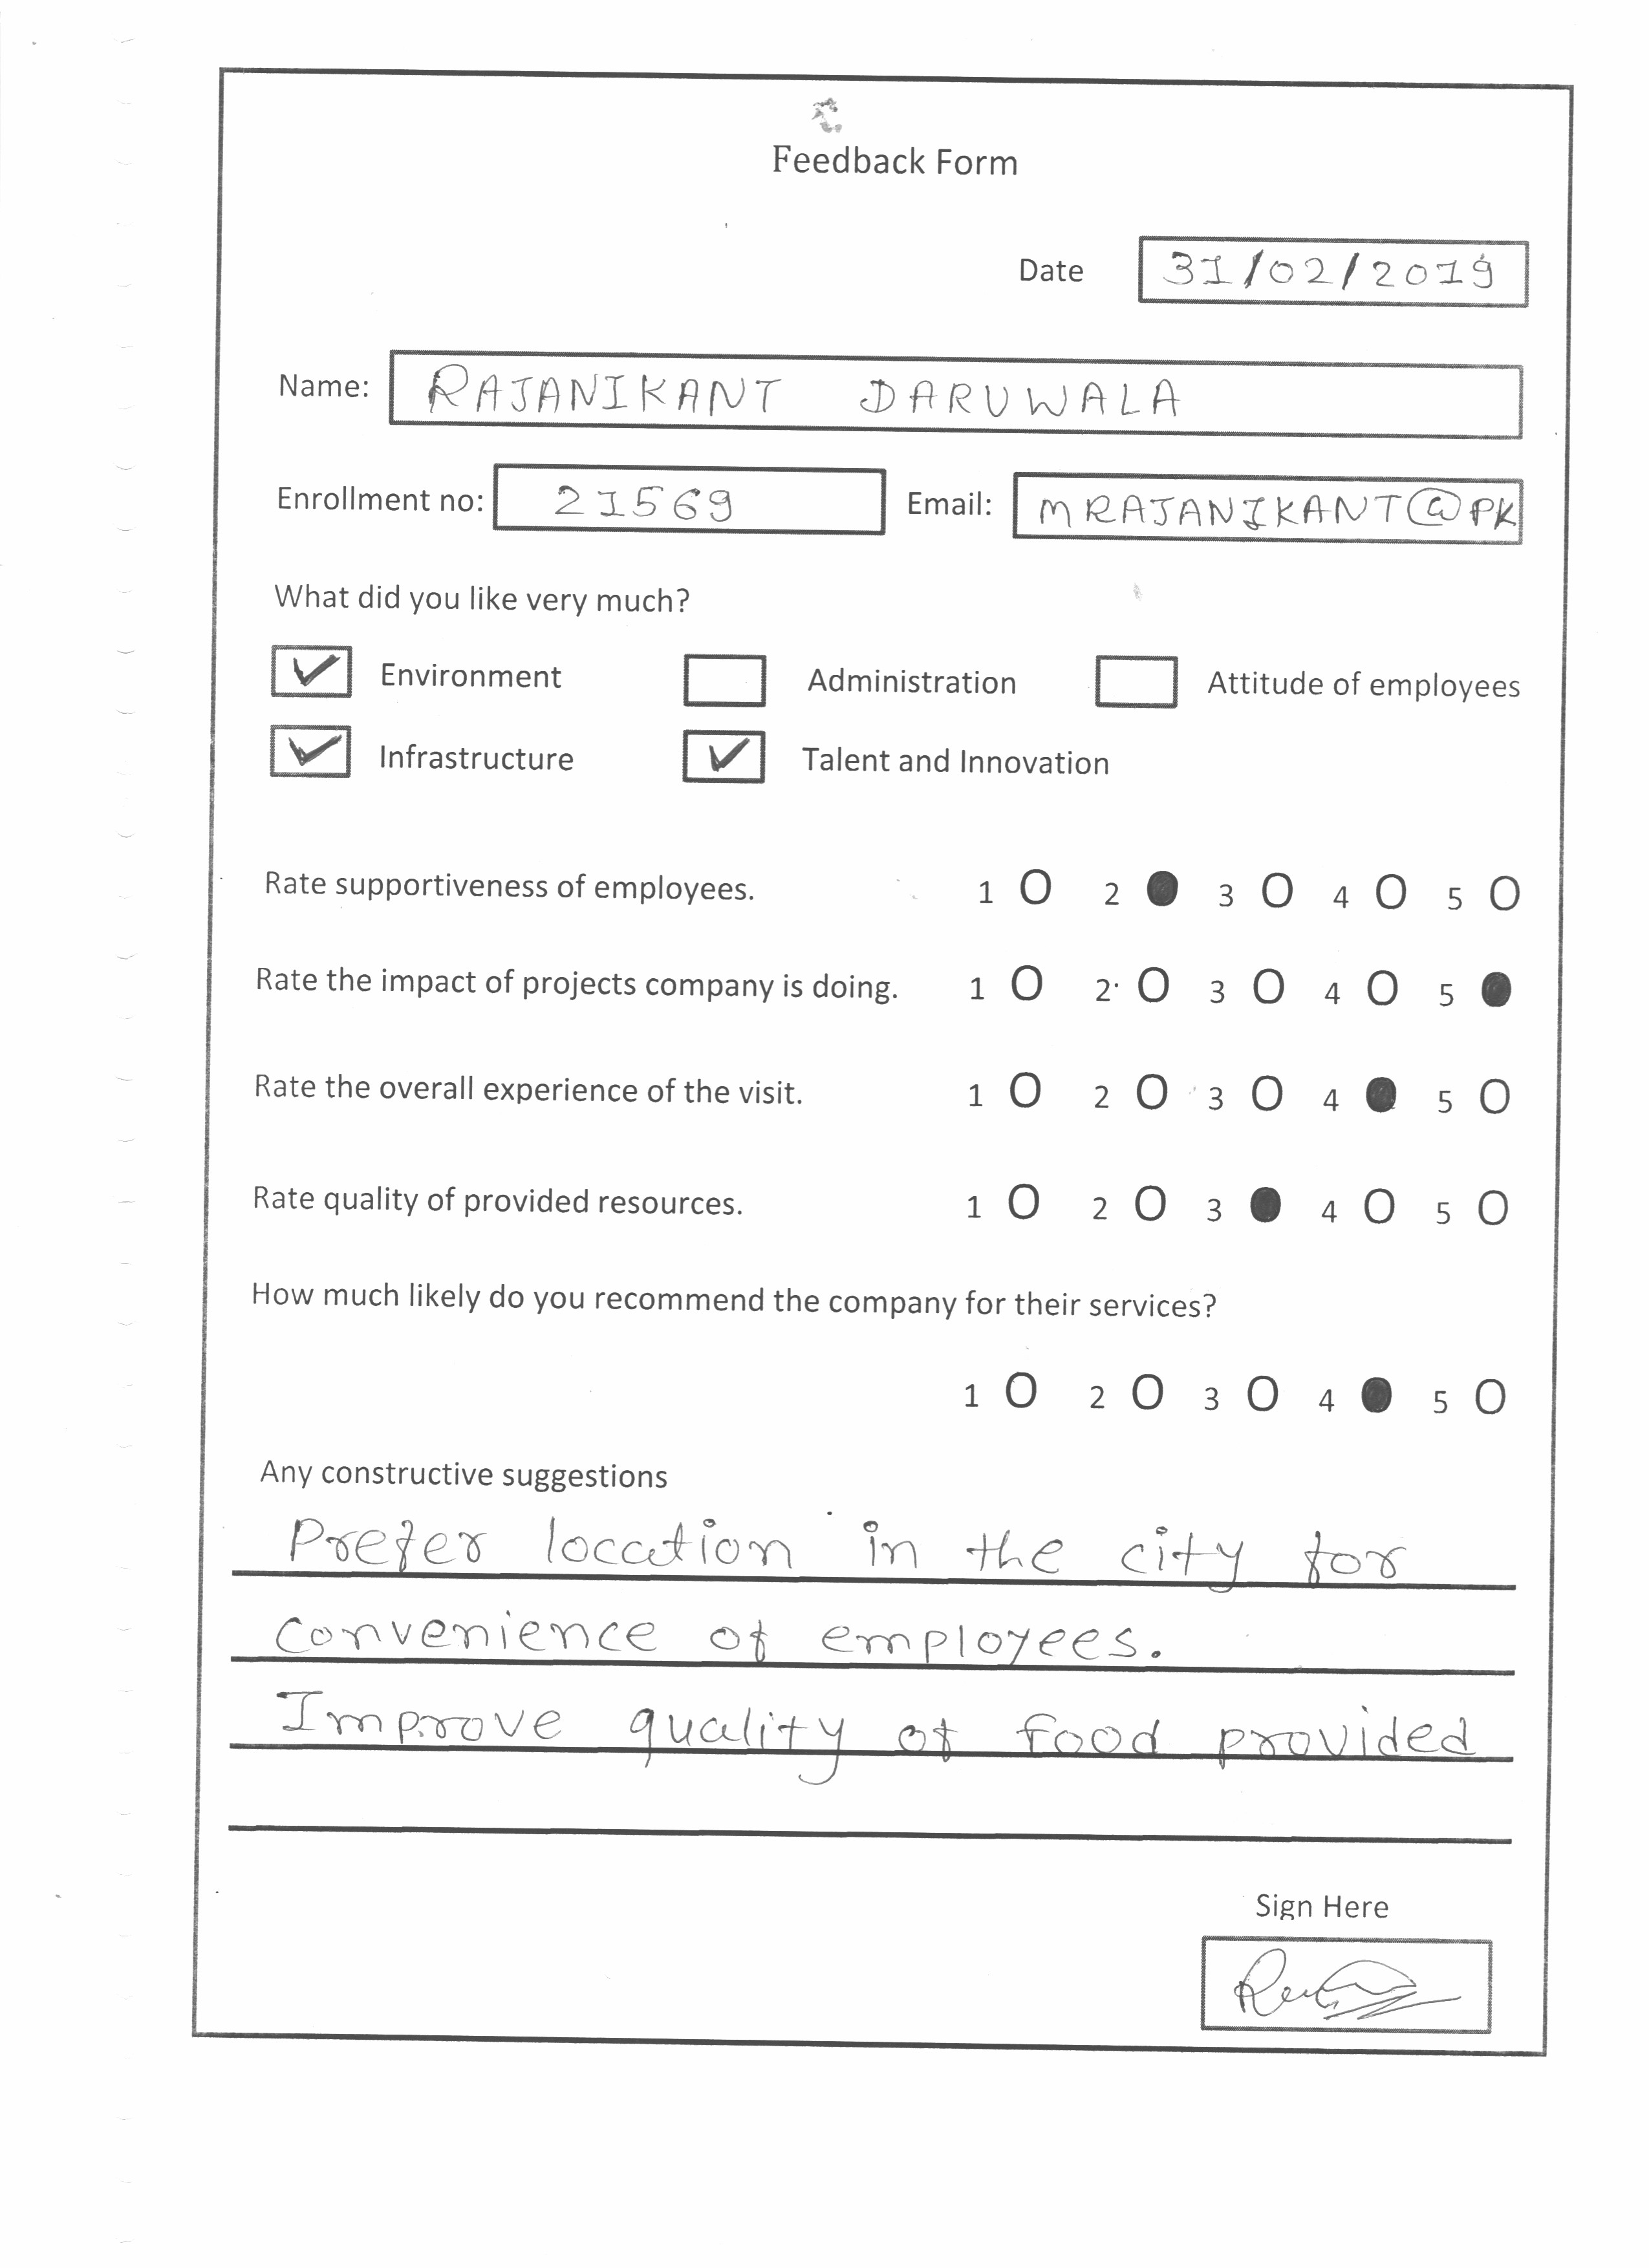 Feedback Form
Date 31/02/2019
Name: RAJANIKANT DARUWALA
Enrollment no: 21569 Email: MRAJANIKANT@PK
What did you like very much?
Environment Administration Attitude of employees
Infrastructure Talent and Innovation
Rate supportiveness of employees. 1 2 3 4 5
Rate the impact of projects company is doing. 1 2 3 4 5
Rate the overall experience of the visit. 1 2 3 4 5
Rate quality of provided resources. 1 2 3 4 5
How much likely do you recommend the company for their services?
1 2 3 4 5
Any constructive suggestions
Prefer location in the city for
convenience of employees.
Improve quality of food provided
Sign Here